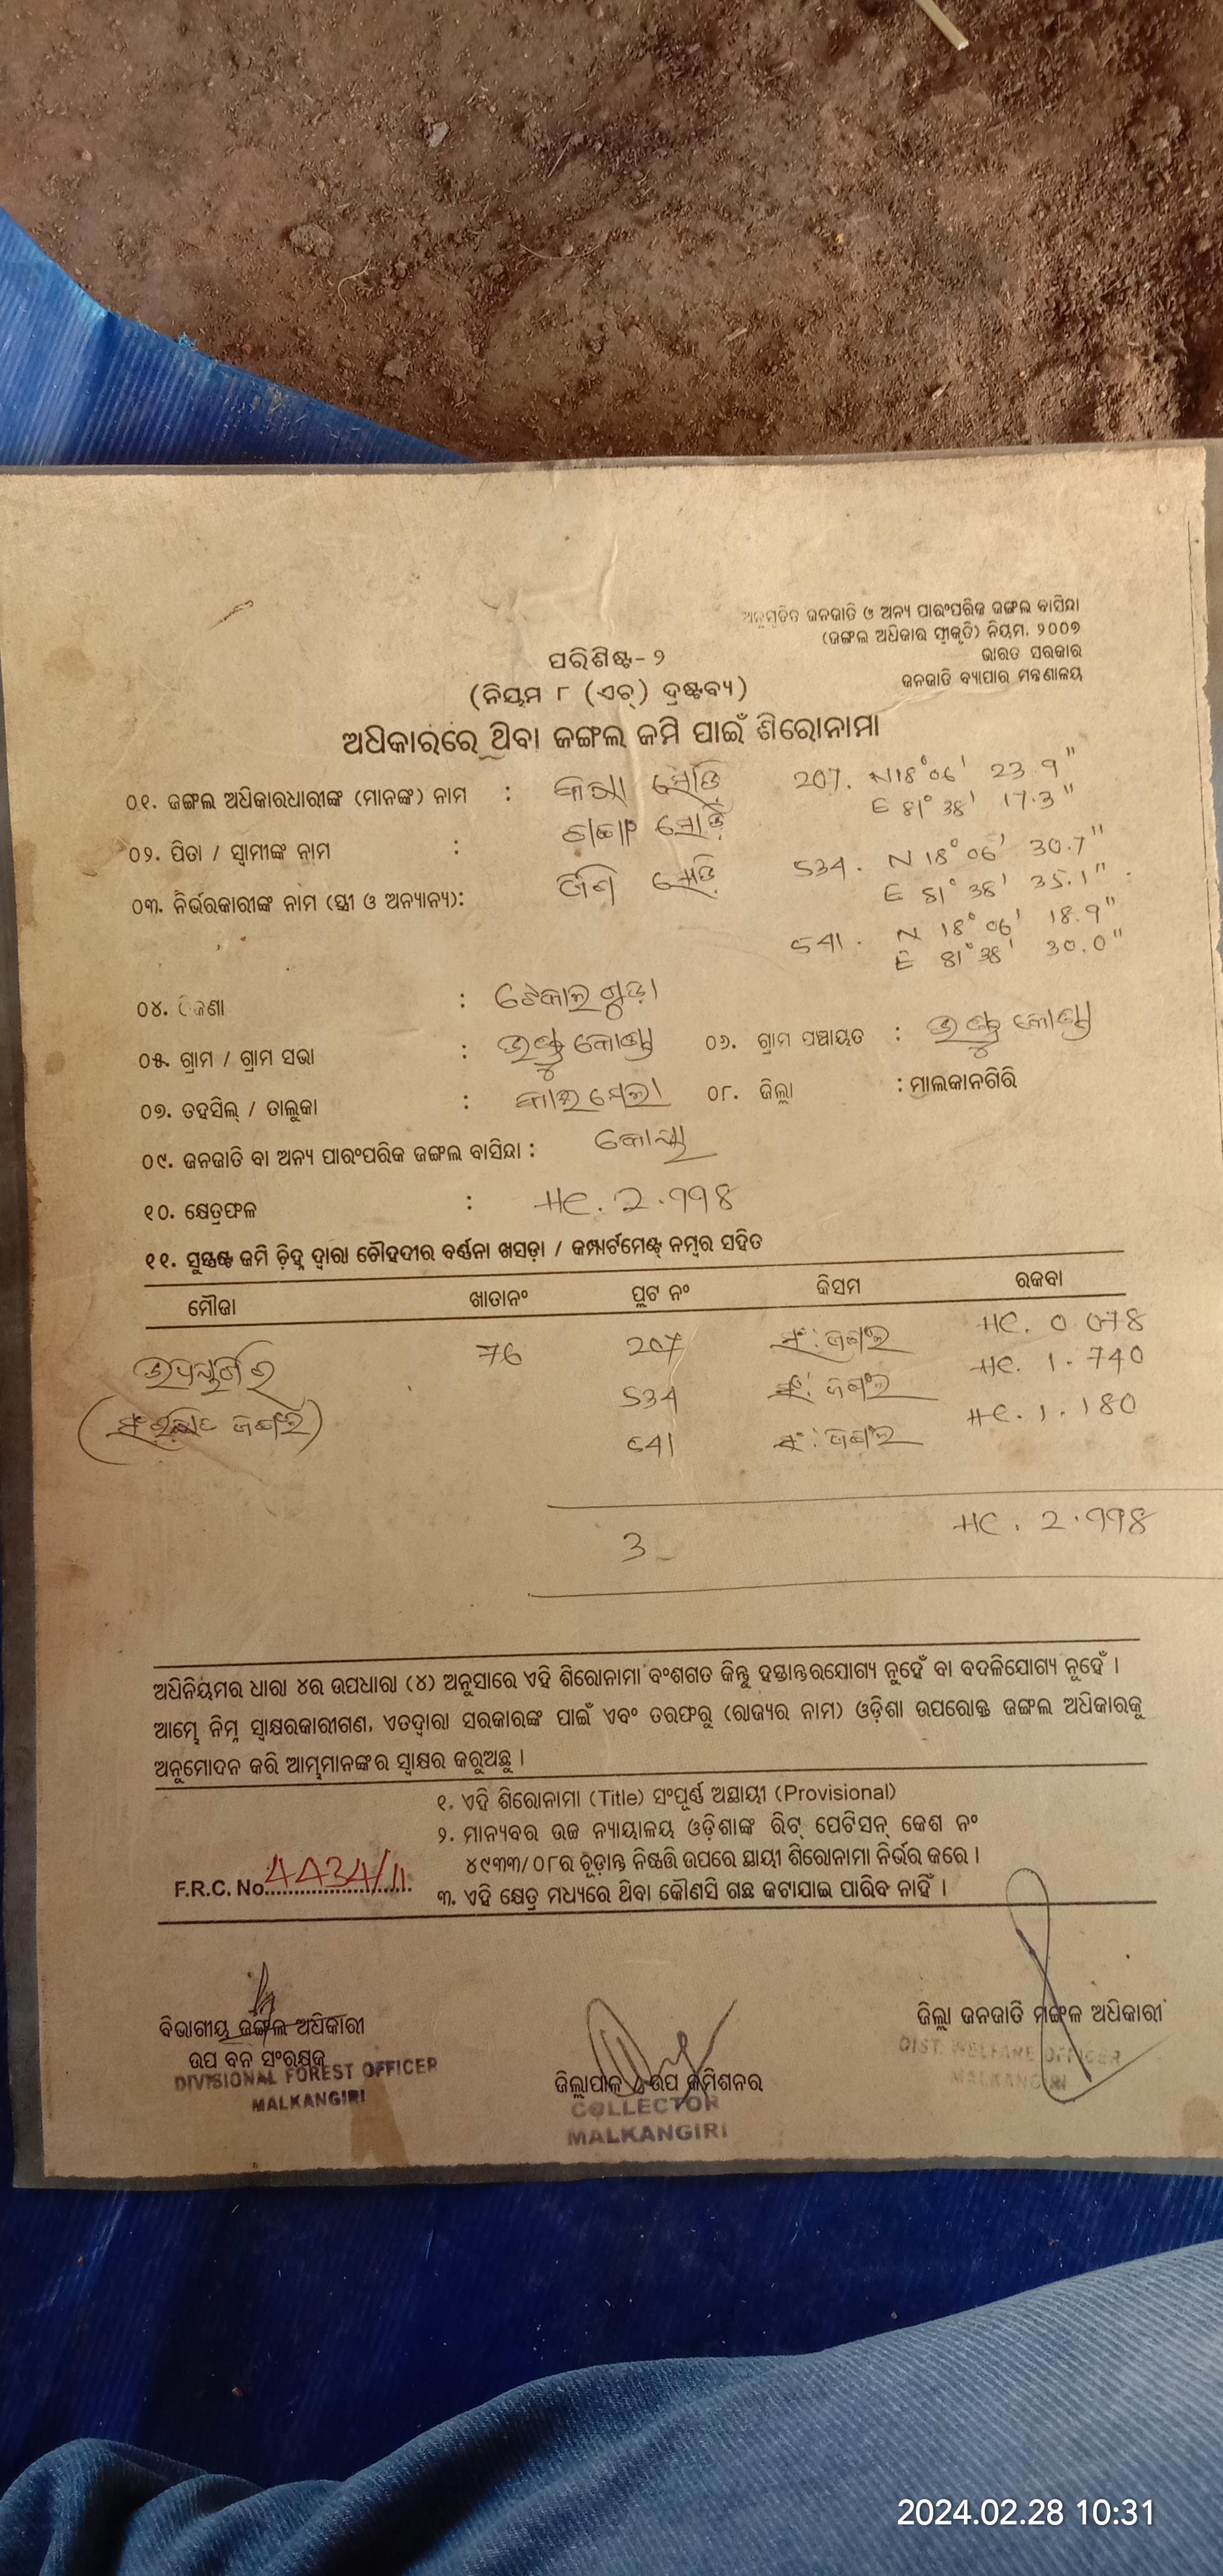 ଅନୁସୂଚିତ ଜନଜାତି ଓ ଅନ୍ୟ ପାରଂପରିକ ଜଙ୍ଗଲ ବାସିନ୍ଦା
(ଜଙ୍ଗଲ ଅଧିକାର ସ୍ୱୀକୃତି) ନିୟମ, ୨୦୦୭
ଭାରତ ସରକାର
ଜନଜାତି ବ୍ୟାପାର ମନ୍ତ୍ରଣାଳୟ
ପରିଶିଷ୍ଟ- ୨
(ନିୟମ ୮ (ଏଚ୍) ଦ୍ରଷ୍ଟବ୍ୟ)
ଅଧିକାରରେ ଥିବା ଜଙ୍ଗଲ ଜମି ପାଇଁ ଶିରୋନାମା
୦୧. ଜଙ୍ଗଲ ଅଧିକାରଧାରୀଙ୍କ (ମାନଙ୍କ) ନାମ :
207. N 18° 06' 23.9"
E 81° 38' 17.3"
୦୨. ପିତା / ସ୍ୱାମୀଙ୍କ ନାମ :
534. N 18° 06' 30.7"
E 81° 38' 35.1"
୦୩. ନିର୍ଭରକାରୀଙ୍କ ନାମ (ସ୍ତ୍ରୀ ଓ ଅନ୍ୟାନ୍ୟ):
541. N 18° 06' 18.9"
E 81° 38' 30.0"
୦୪. ଠିକଣା : ଟେକାଲଗୁଡ଼ା
୦୫. ଗ୍ରାମ / ଗ୍ରାମ ସଭା : ୦୬. ଗ୍ରାମ ପଞ୍ଚାୟତ :
୦୭. ତହସିଲ୍ / ତାଲୁକା : ୦୮. ଜିଲ୍ଲା : ମାଲକାନଗିରି
୦୯. ଜନଜାତି ବା ଅନ୍ୟ ପାରଂପରିକ ଜଙ୍ଗଲ ବାସିନ୍ଦା : କୋୟା
୧୦. କ୍ଷେତ୍ରଫଳ : HC. 2.998
୧୧. ସୁସ୍ପଷ୍ଟ ଜମି ଚିହ୍ନ ଦ୍ୱାରା ଚୌହଦୀର ବର୍ଣ୍ଣନା ଖସଡ଼ା / କମ୍ପାର୍ଟମେଣ୍ଟ୍ ନମ୍ବର ସହିତ
ମୌଜା ଖାତାନଂ ପ୍ଲଟ ନଂ କିସମ ରକବା
76 207 ସଂ: ଜଙ୍ଗଲ HC. 0.078
534 ସଂ: ଜଙ୍ଗଲ HC. 1.740
(ସଂରକ୍ଷିତ ଜଙ୍ଗଲ) 541 ସଂ: ଜଙ୍ଗଲ HC. 1.180
3 HC. 2.998
ଅଧିନିୟମର ଧାରା ୪ର ଉପଧାରା (୪) ଅନୁସାରେ ଏହି ଶିରୋନାମା ବଂଶଗତ କିନ୍ତୁ ହସ୍ତାନ୍ତରଯୋଗ୍ୟ ନୁହେଁ ବା ବଦଳିଯୋଗ୍ୟ ନୁହେଁ ।
ଆମ୍ଭେ ନିମ୍ନ ସ୍ୱାକ୍ଷରକାରୀଗଣ, ଏତଦ୍ୱାରା ସରକାରଙ୍କ ପାଇଁ ଏବଂ ତରଫରୁ (ରାଜ୍ୟର ନାମ) ଓଡ଼ିଶା ଉପରୋକ୍ତ ଜଙ୍ଗଲ ଅଧିକାରକୁ
ଅନୁମୋଦନ କରି ଆମ୍ଭମାନଙ୍କର ସ୍ୱାକ୍ଷର କରୁଅଛୁ ।
୧. ଏହି ଶିରୋନାମା (Title) ସଂପୂର୍ଣ୍ଣ ଅସ୍ଥାୟୀ (Provisional)
୨. ମାନ୍ୟବର ଉଚ୍ଚ ନ୍ୟାୟାଳୟ ଓଡ଼ିଶାଙ୍କ ରିଟ୍ ପେଟିସନ୍ କେଶ ନଂ
୪୯୩୩/୦୮ର ଚୂଡ଼ାନ୍ତ ନିଷ୍ପତ୍ତି ଉପରେ ସ୍ଥାୟୀ ଶିରୋନାମା ନିର୍ଭର କରେ ।
F.R.C. No. 4434/11
୩. ଏହି କ୍ଷେତ୍ର ମଧ୍ୟରେ ଥିବା କୌଣସି ଗଛ କଟାଯାଇ ପାରିବ ନାହିଁ ।
ବିଭାଗୀୟ ଜଙ୍ଗଲ ଅଧିକାରୀ
ଉପ ବନ ସଂରକ୍ଷକ
DIVISIONAL FOREST OFFICER
MALKANGIRI
ଜିଲ୍ଲାପାଳ / ଉପ କମିଶନର
COLLECTOR
MALKANGIRI
ଜିଲ୍ଲା ଜନଜାତି ମଙ୍ଗଳ ଅଧିକାରୀ
DIST. WELFARE OFFICER
MALKANGIRI
2024.02.28 10:31